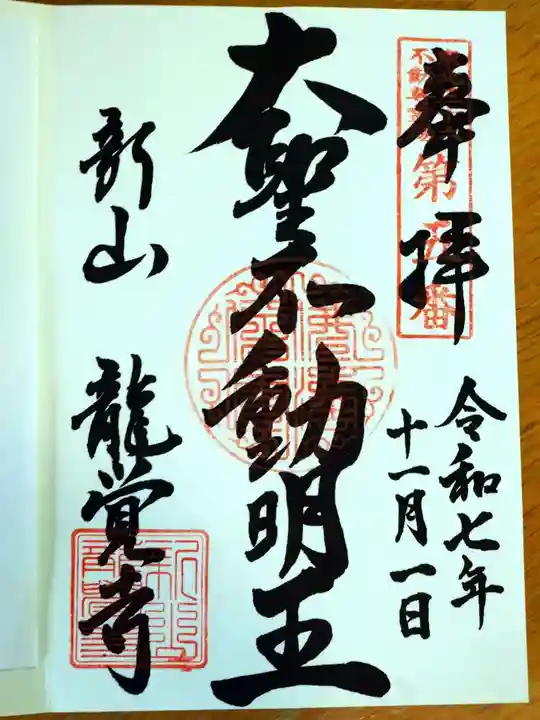 奉拝
第
番
令和七年
十一月一日
大聖不動明王
新山
龍覚寺